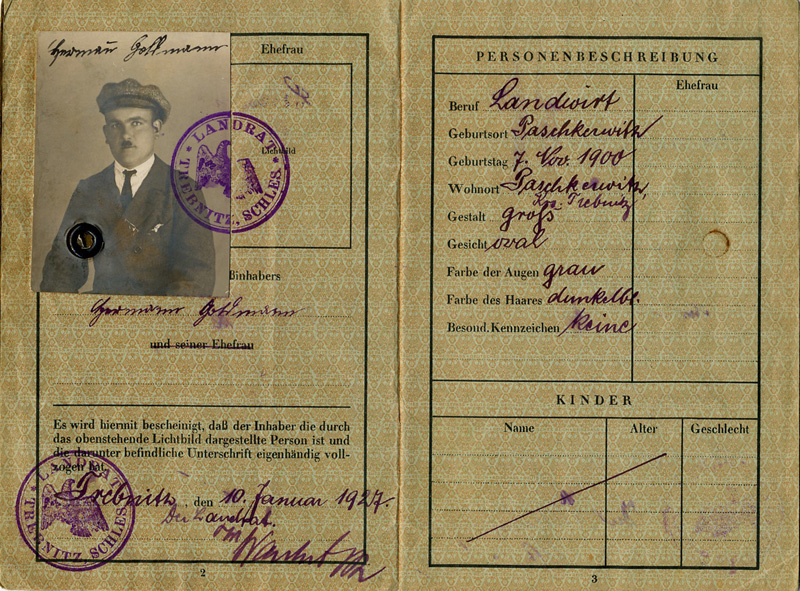 Hermann Goldmann
Ehefrau
Lichtbild
LANDRAT
TREBNITZ, SCHLES.
Hermann Goldmann
und seiner Ehefrau
Es wird hiermit bescheinigt, daß der Inhaber die durch
das obenstehende Lichtbild dargestellte Person ist und
die darunter befindliche Unterschrift eigenhändig voll-
zogen hat.
Trebnitz, den 10. Januar 1927.
Der Landrat.
LANDRAT
TREBNITZ, SCHLES.
2
PERSONENBESCHREIBUNG
Ehefrau
Beruf Landwirt
Geburtsort Paschkerwitz
Geburtstag 7. Nov. 1900
Wohnort Paschkerwitz,
Krs. Trebnitz
Gestalt groß
Gesicht oval
Farbe der Augen grau
Farbe des Haares dunkelbl.
Besond. Kennzeichen keine
KINDER
Name Alter Geschlecht
3